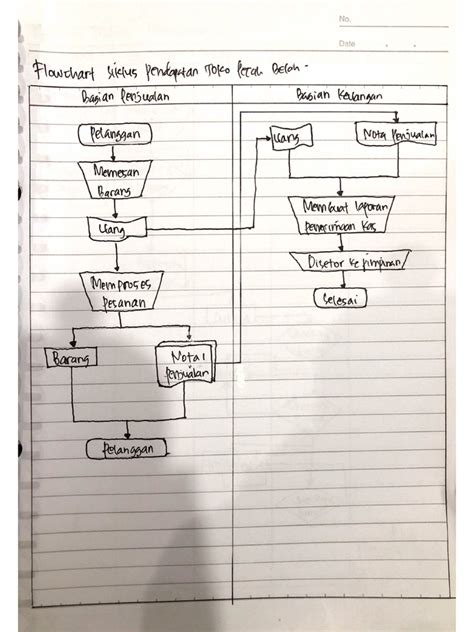 No.
Date
Flowchart siklus Pendapatan Toko Pecah Belah.
Bagian Penjualan
Bagian Keuangan
Pelanggan
Memesan
Barang
Uang
Memproses
Pesanan
Barang
Nota 1
Penjualan
Pelanggan
Uang
Nota Penjualan
Membuat laporan
Penerimaan Kas
Disetor ke pimpinan
Selesai